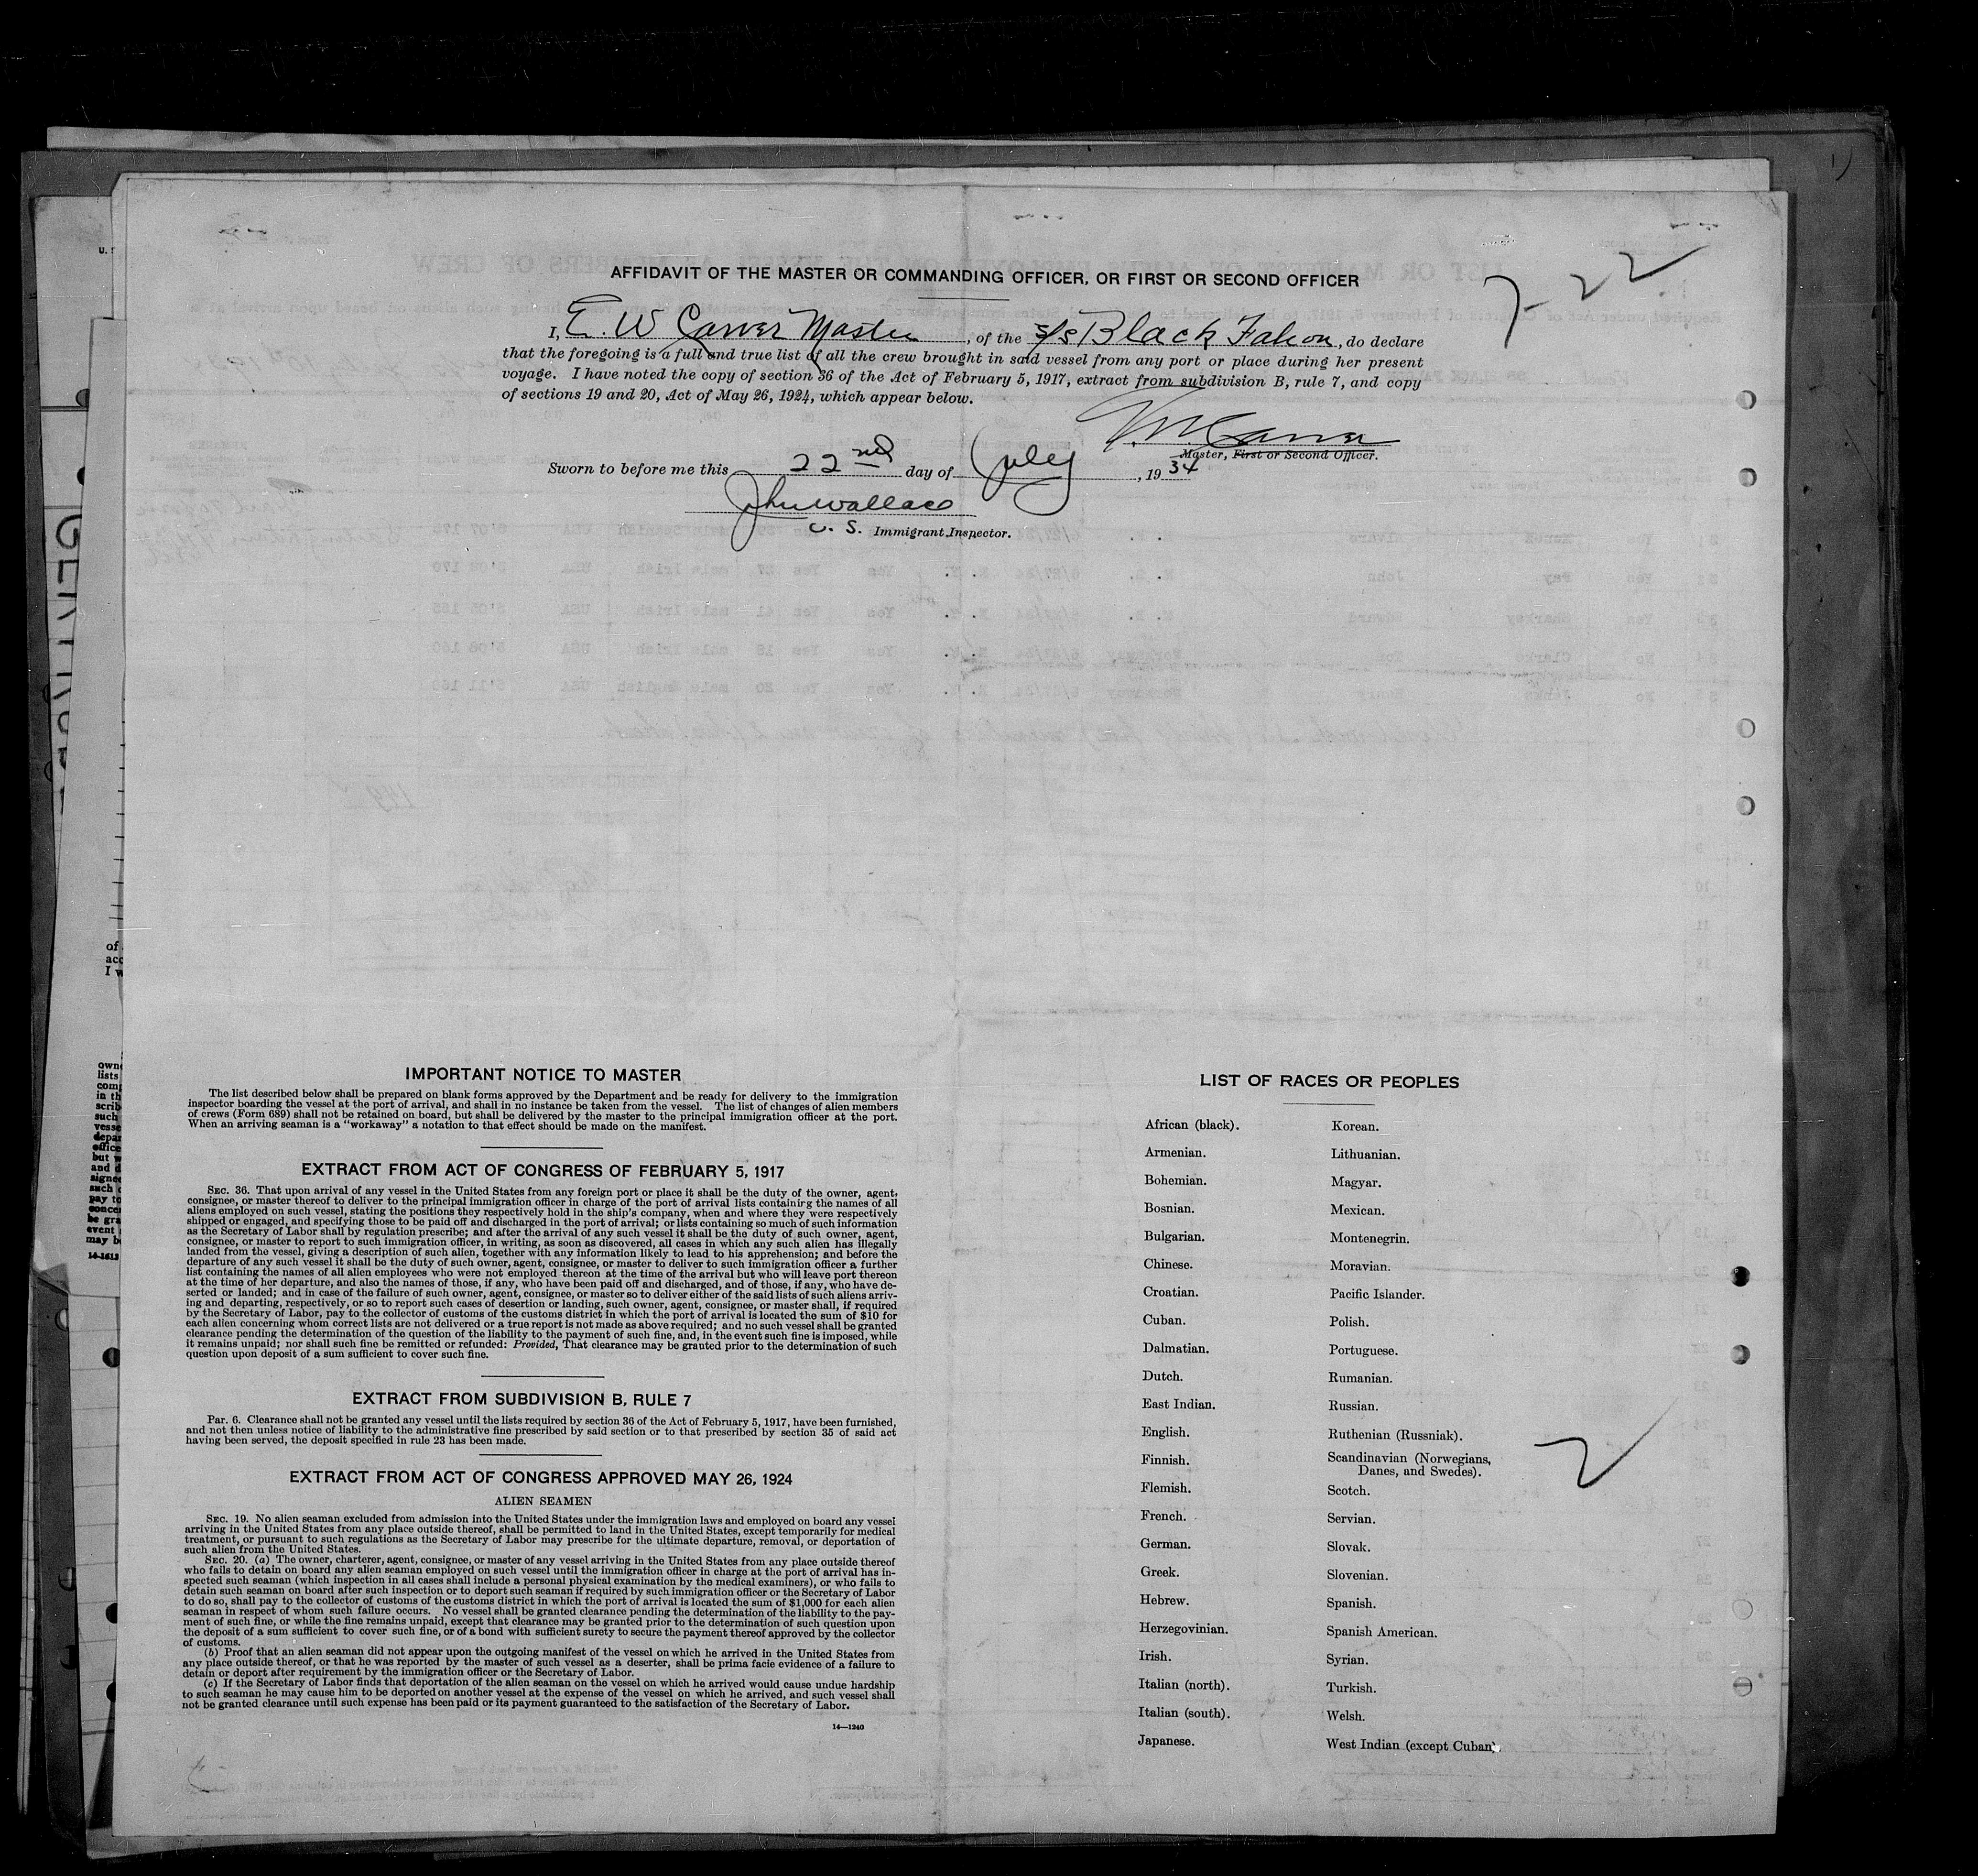 7-22
AFFIDAVIT OF THE MASTER OR COMMANDING OFFICER, OR FIRST OR SECOND OFFICER
I, E. W Carver Master, of the S/S Black Falcon, do declare
that the foregoing is a full and true list of all the crew brought in said vessel from any port or place during her present
voyage. I have noted the copy of section 36 of the Act of February 5, 1917, extract from subdivision B, rule 7, and copy
of sections 19 and 20, Act of May 26, 1924, which appear below.
Master, First or Second Officer.
Sworn to before me this 22nd day of July, 1934
John Wallace
U. S. Immigrant Inspector.
IMPORTANT NOTICE TO MASTER
The list described below shall be prepared on blank forms approved by the Department and be ready for delivery to the immigration
inspector boarding the vessel at the port of arrival, and shall in no instance be taken from the vessel. The list of changes of alien members
of crews (Form 689) shall not be retained on board, but shall be delivered by the master to the principal immigration officer at the port.
When an arriving seaman is a "workaway" a notation to that effect should be made on the manifest.
EXTRACT FROM ACT OF CONGRESS OF FEBRUARY 5, 1917
SEC. 36. That upon arrival of any vessel in the United States from any foreign port or place it shall be the duty of the owner, agent,
consignee, or master thereof to deliver to the principal immigration officer in charge of the port of arrival lists containing the names of all
aliens employed on such vessel, stating the positions they respectively hold in the ship's company, when and where they were respectively
shipped or engaged, and specifying those to be paid off and discharged in the port of arrival; or lists containing so much of such information
as the Secretary of Labor shall by regulation prescribe; and after the arrival of any such vessel it shall be the duty of such owner, agent,
consignee, or master to report to such immigration officer, in writing, as soon as discovered, all cases in which any such alien has illegally
landed from the vessel, giving a description of such alien, together with any information likely to lead to his apprehension; and before the
departure of any such vessel it shall be the duty of such owner, agent, consignee, or master to deliver to such immigration officer a further
list containing the names of all alien employees who were not employed thereon at the time of the arrival but who will leave port thereon
at the time of her departure, and also the names of those, if any, who have been paid off and discharged, and of those, if any, who have de-
serted or landed; and in case of the failure of such owner, agent, consignee, or master so to deliver either of the said lists of such aliens arriv-
ing and departing, respectively, or so to report such cases of desertion or landing, such owner, agent, consignee, or master shall, if required
by the Secretary of Labor, pay to the collector of customs of the customs district in which the port of arrival is located the sum of $10 for
each alien concerning whom correct lists are not delivered or a true report is not made as above required; and no such vessel shall be granted
clearance pending the determination of the question of the liability to the payment of such fine, and, in the event such fine is imposed, while
it remains unpaid; nor shall such fine be remitted or refunded: Provided, That clearance may be granted prior to the determination of such
question upon deposit of a sum sufficient to cover such fine.
EXTRACT FROM SUBDIVISION B, RULE 7
Par. 6. Clearance shall not be granted any vessel until the lists required by section 36 of the Act of February 5, 1917, have been furnished,
and not then unless notice of liability to the administrative fine prescribed by said section or to that prescribed by section 35 of said act
having been served, the deposit specified in rule 23 has been made.
EXTRACT FROM ACT OF CONGRESS APPROVED MAY 26, 1924
ALIEN SEAMEN
SEC. 19. No alien seaman excluded from admission into the United States under the immigration laws and employed on board any vessel
arriving in the United States from any place outside thereof, shall be permitted to land in the United States, except temporarily for medical
treatment, or pursuant to such regulations as the Secretary of Labor may prescribe for the ultimate departure, removal, or deportation of
such alien from the United States.
SEC. 20. (a) The owner, charterer, agent, consignee, or master of any vessel arriving in the United States from any place outside thereof
who fails to detain on board any alien seaman employed on such vessel until the immigration officer in charge at the port of arrival has in-
spected such seaman (which inspection in all cases shall include a personal physical examination by the medical examiners), or who fails to
detain such seaman on board after such inspection or to deport such seaman if required by such immigration officer or the Secretary of Labor
to do so, shall pay to the collector of customs of the customs district in which the port of arrival is located the sum of $1,000 for each alien
seaman in respect of whom such failure occurs. No vessel shall be granted clearance pending the determination of the liability to the pay-
ment of such fine, or while the fine remains unpaid, except that clearance may be granted prior to the determination of such question upon
the deposit of a sum sufficient to cover such fine, or of a bond with sufficient surety to secure the payment thereof approved by the collector
of customs.
(b) Proof that an alien seaman did not appear upon the outgoing manifest of the vessel on which he arrived in the United States from
any place outside thereof, or that he was reported by the master of such vessel as a deserter, shall be prima facie evidence of a failure to
detain or deport after requirement by the immigration officer or the Secretary of Labor.
(c) If the Secretary of Labor finds that deportation of the alien seaman on the vessel on which he arrived would cause undue hardship
to such seaman he may cause him to be deported on another vessel at the expense of the vessel on which he arrived, and such vessel shall
not be granted clearance until such expense has been paid or its payment guaranteed to the satisfaction of the Secretary of Labor.
14—1240
LIST OF RACES OR PEOPLES
African (black).
Armenian.
Bohemian.
Bosnian.
Bulgarian.
Chinese.
Croatian.
Cuban.
Dalmatian.
Dutch.
East Indian.
English.
Finnish.
Flemish.
French.
German.
Greek.
Hebrew.
Herzegovinian.
Irish.
Italian (north).
Italian (south).
Japanese.
Korean.
Lithuanian.
Magyar.
Mexican.
Montenegrin.
Moravian.
Pacific Islander.
Polish.
Portuguese.
Rumanian.
Russian.
Ruthenian (Russniak).
Scandinavian (Norwegians,
Danes, and Swedes).
Scotch.
Servian.
Slovak.
Slovenian.
Spanish.
Spanish American.
Syrian.
Turkish.
Welsh.
West Indian (except Cuban).